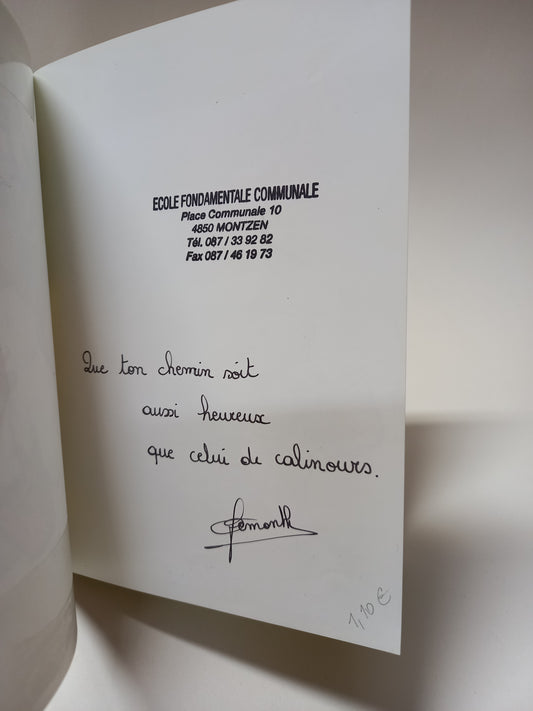 ECOLE FONDAMENTALE COMMUNALE
Place Communale 10
4850 MONTZEN
Tél. 087 / 33 92 82
Fax 087 / 46 19 73
Que ton chemin soit
aussi heureux
que celui de calinours.
1,10 €